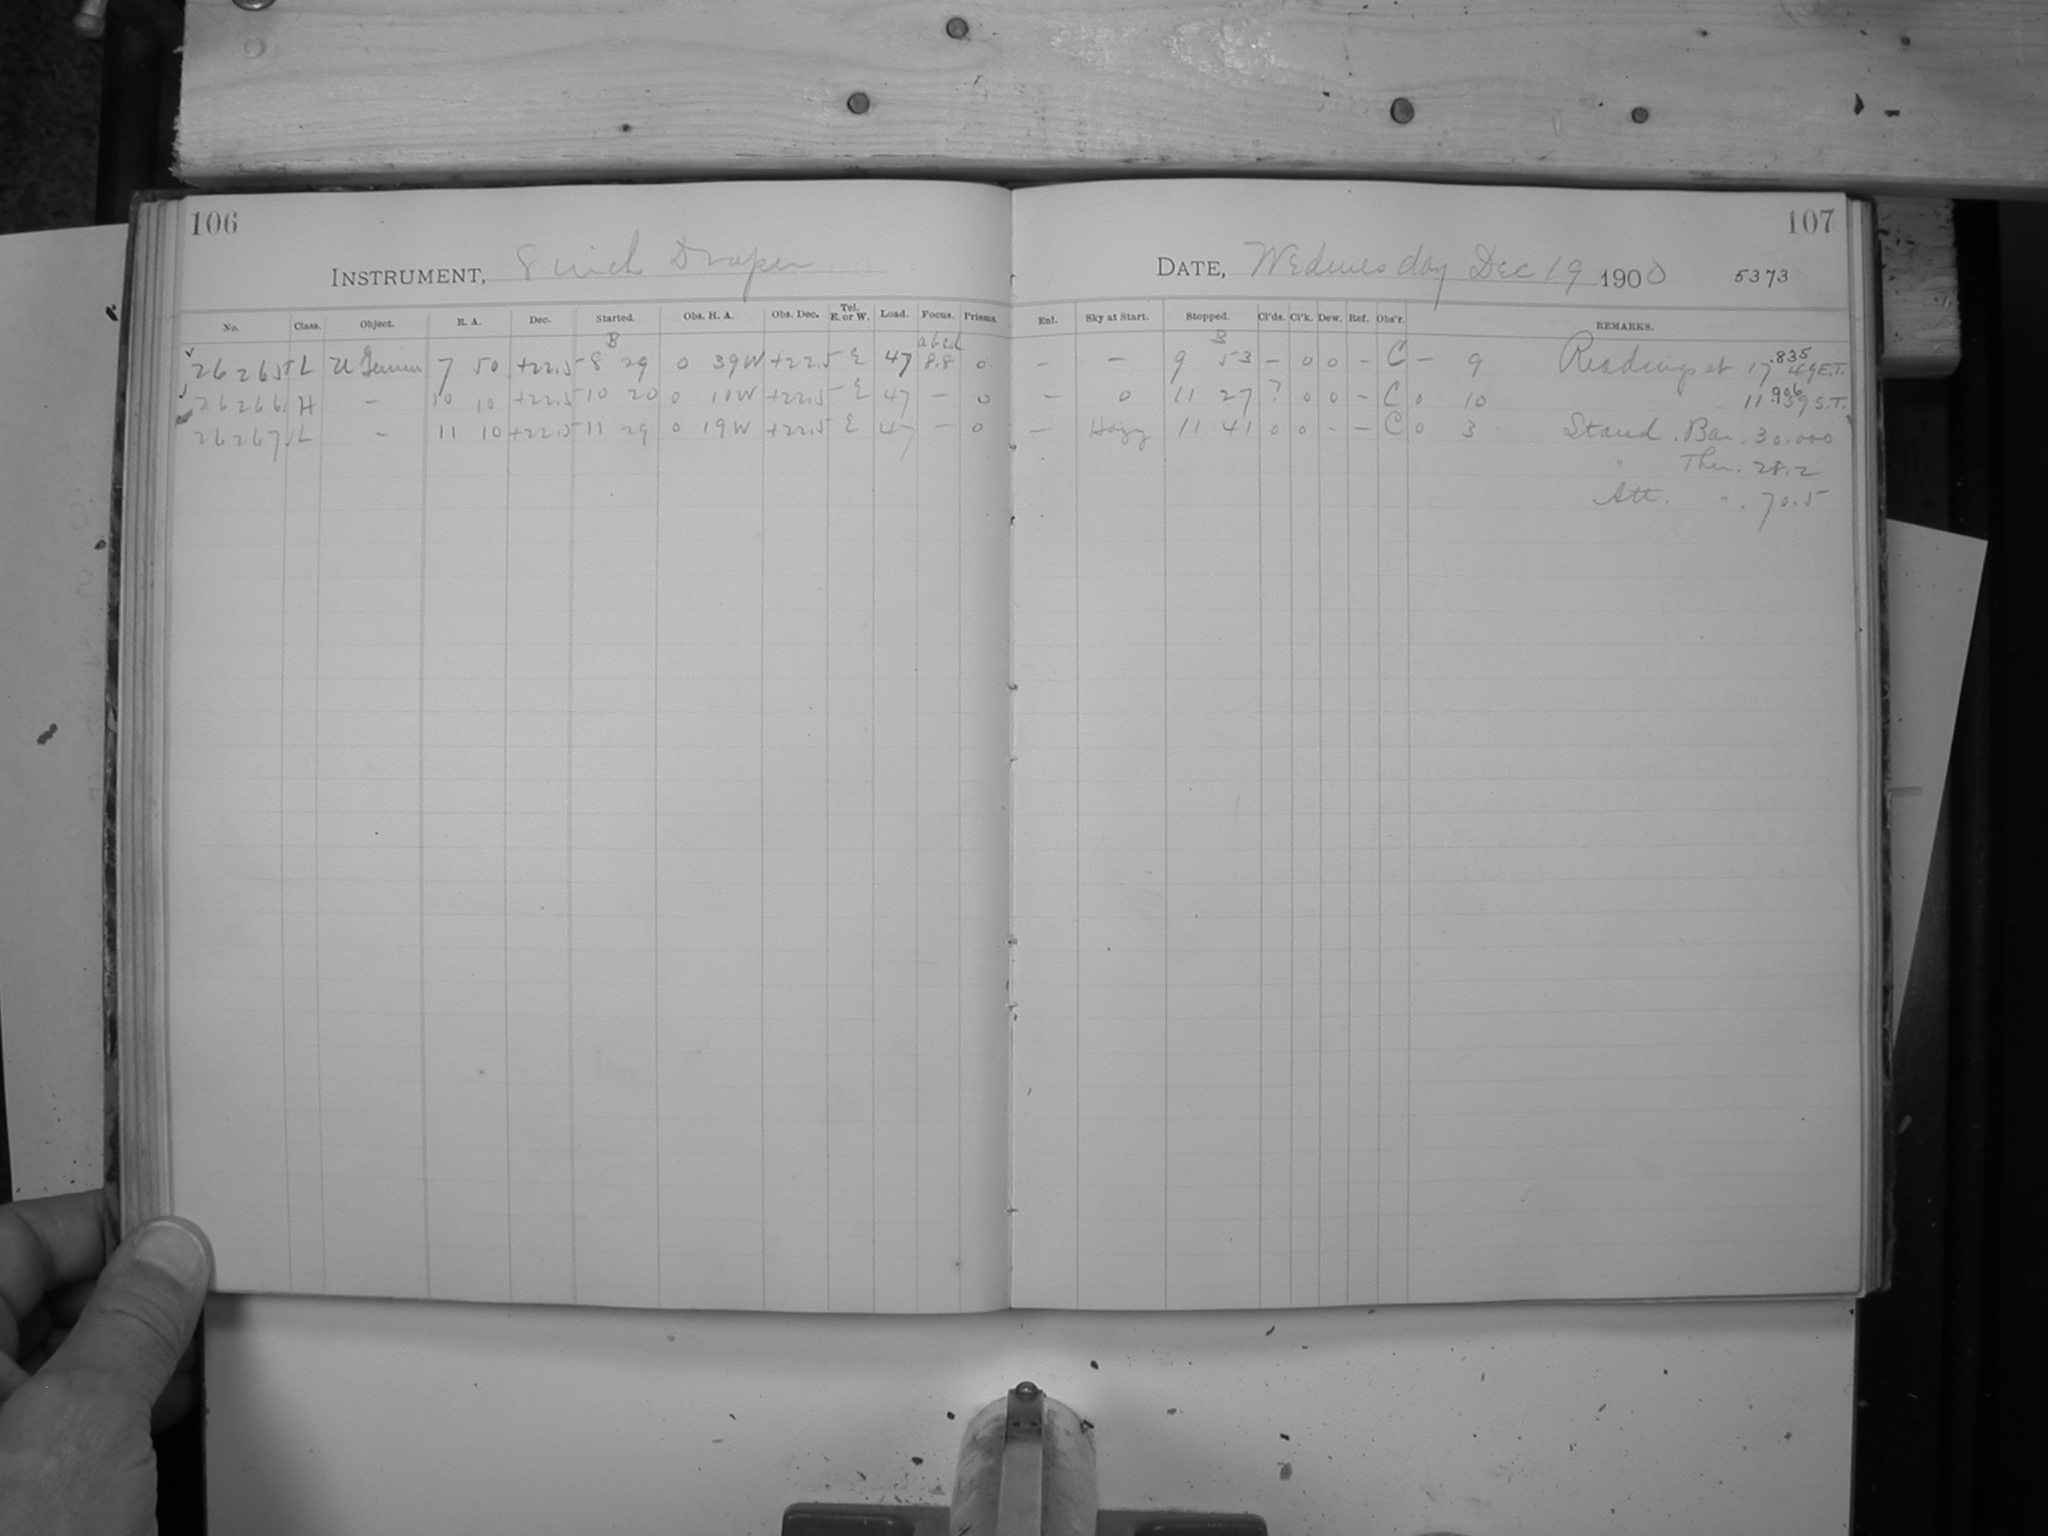 106
INSTRUMENT, 8 inch Draper
No. Class. Object. R. A. Dec. Started. Obs. H. A. Obs. Dec. Tel. E. or W. Load. Focus. Prisms.
B abcd
26265 L U Gemin 7 50 +22.5 8 29 0 39W +22.5 E 47 8.8 0
26266 H – 10 10 +22.5 10 20 0 10W +22.5 E 47 – 0
26267 L – 11 10 +22.5 11 29 0 19W +22.5 E 47 – 0
107
DATE, Wednesday Dec 19 1900 5373
Enl. Sky at Start. Stopped. Cl'ds. Cl'k. Dew. Ref. Obs'r. REMARKS.
B
– – 9 53 – 0 0 – C – 9 Readings at 17 .835 E.T.
– 0 11 27 ? 0 0 – C 0 10 11 .906 S.T.
– Hazy 11 41 0 0 - – C 0 3 Stand. Bar. 30.000
" Ther. 28.2
Att. " . 70.5